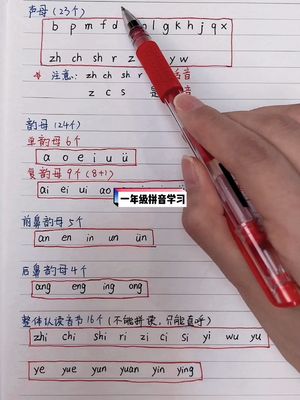 声母(23个)
b p m f d l g k h j q x
zh ch sh r z y w
☆ 注意: zh ch sh r 舌音
z c s 是 音
韵母(24个)
单韵母 6个
a o e i u ü
复韵母 9个 (8+1)
ai ei ui ao
一年级拼音学习
前鼻韵母 5个
an en in un ün
后鼻韵母 4个
ang eng ing ong
整体认读音节16个(不能拼读,只能直呼)
zhi chi shi ri zi ci si yi wu yu
ye yue yun yuan yin ying